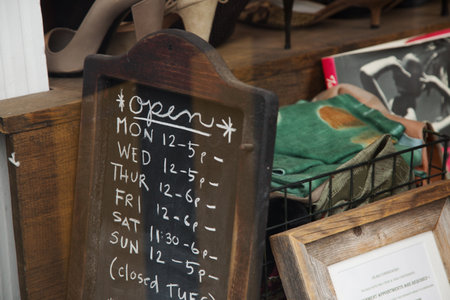 *open*
MON 12-5p-
WED 12-5p-
THUR 12-6p-
FRI 12-6p-
SAT 11:30-6p-
SUN 12-5p-
(closed TUES
APPOINTMENTS ARE REQUIRED